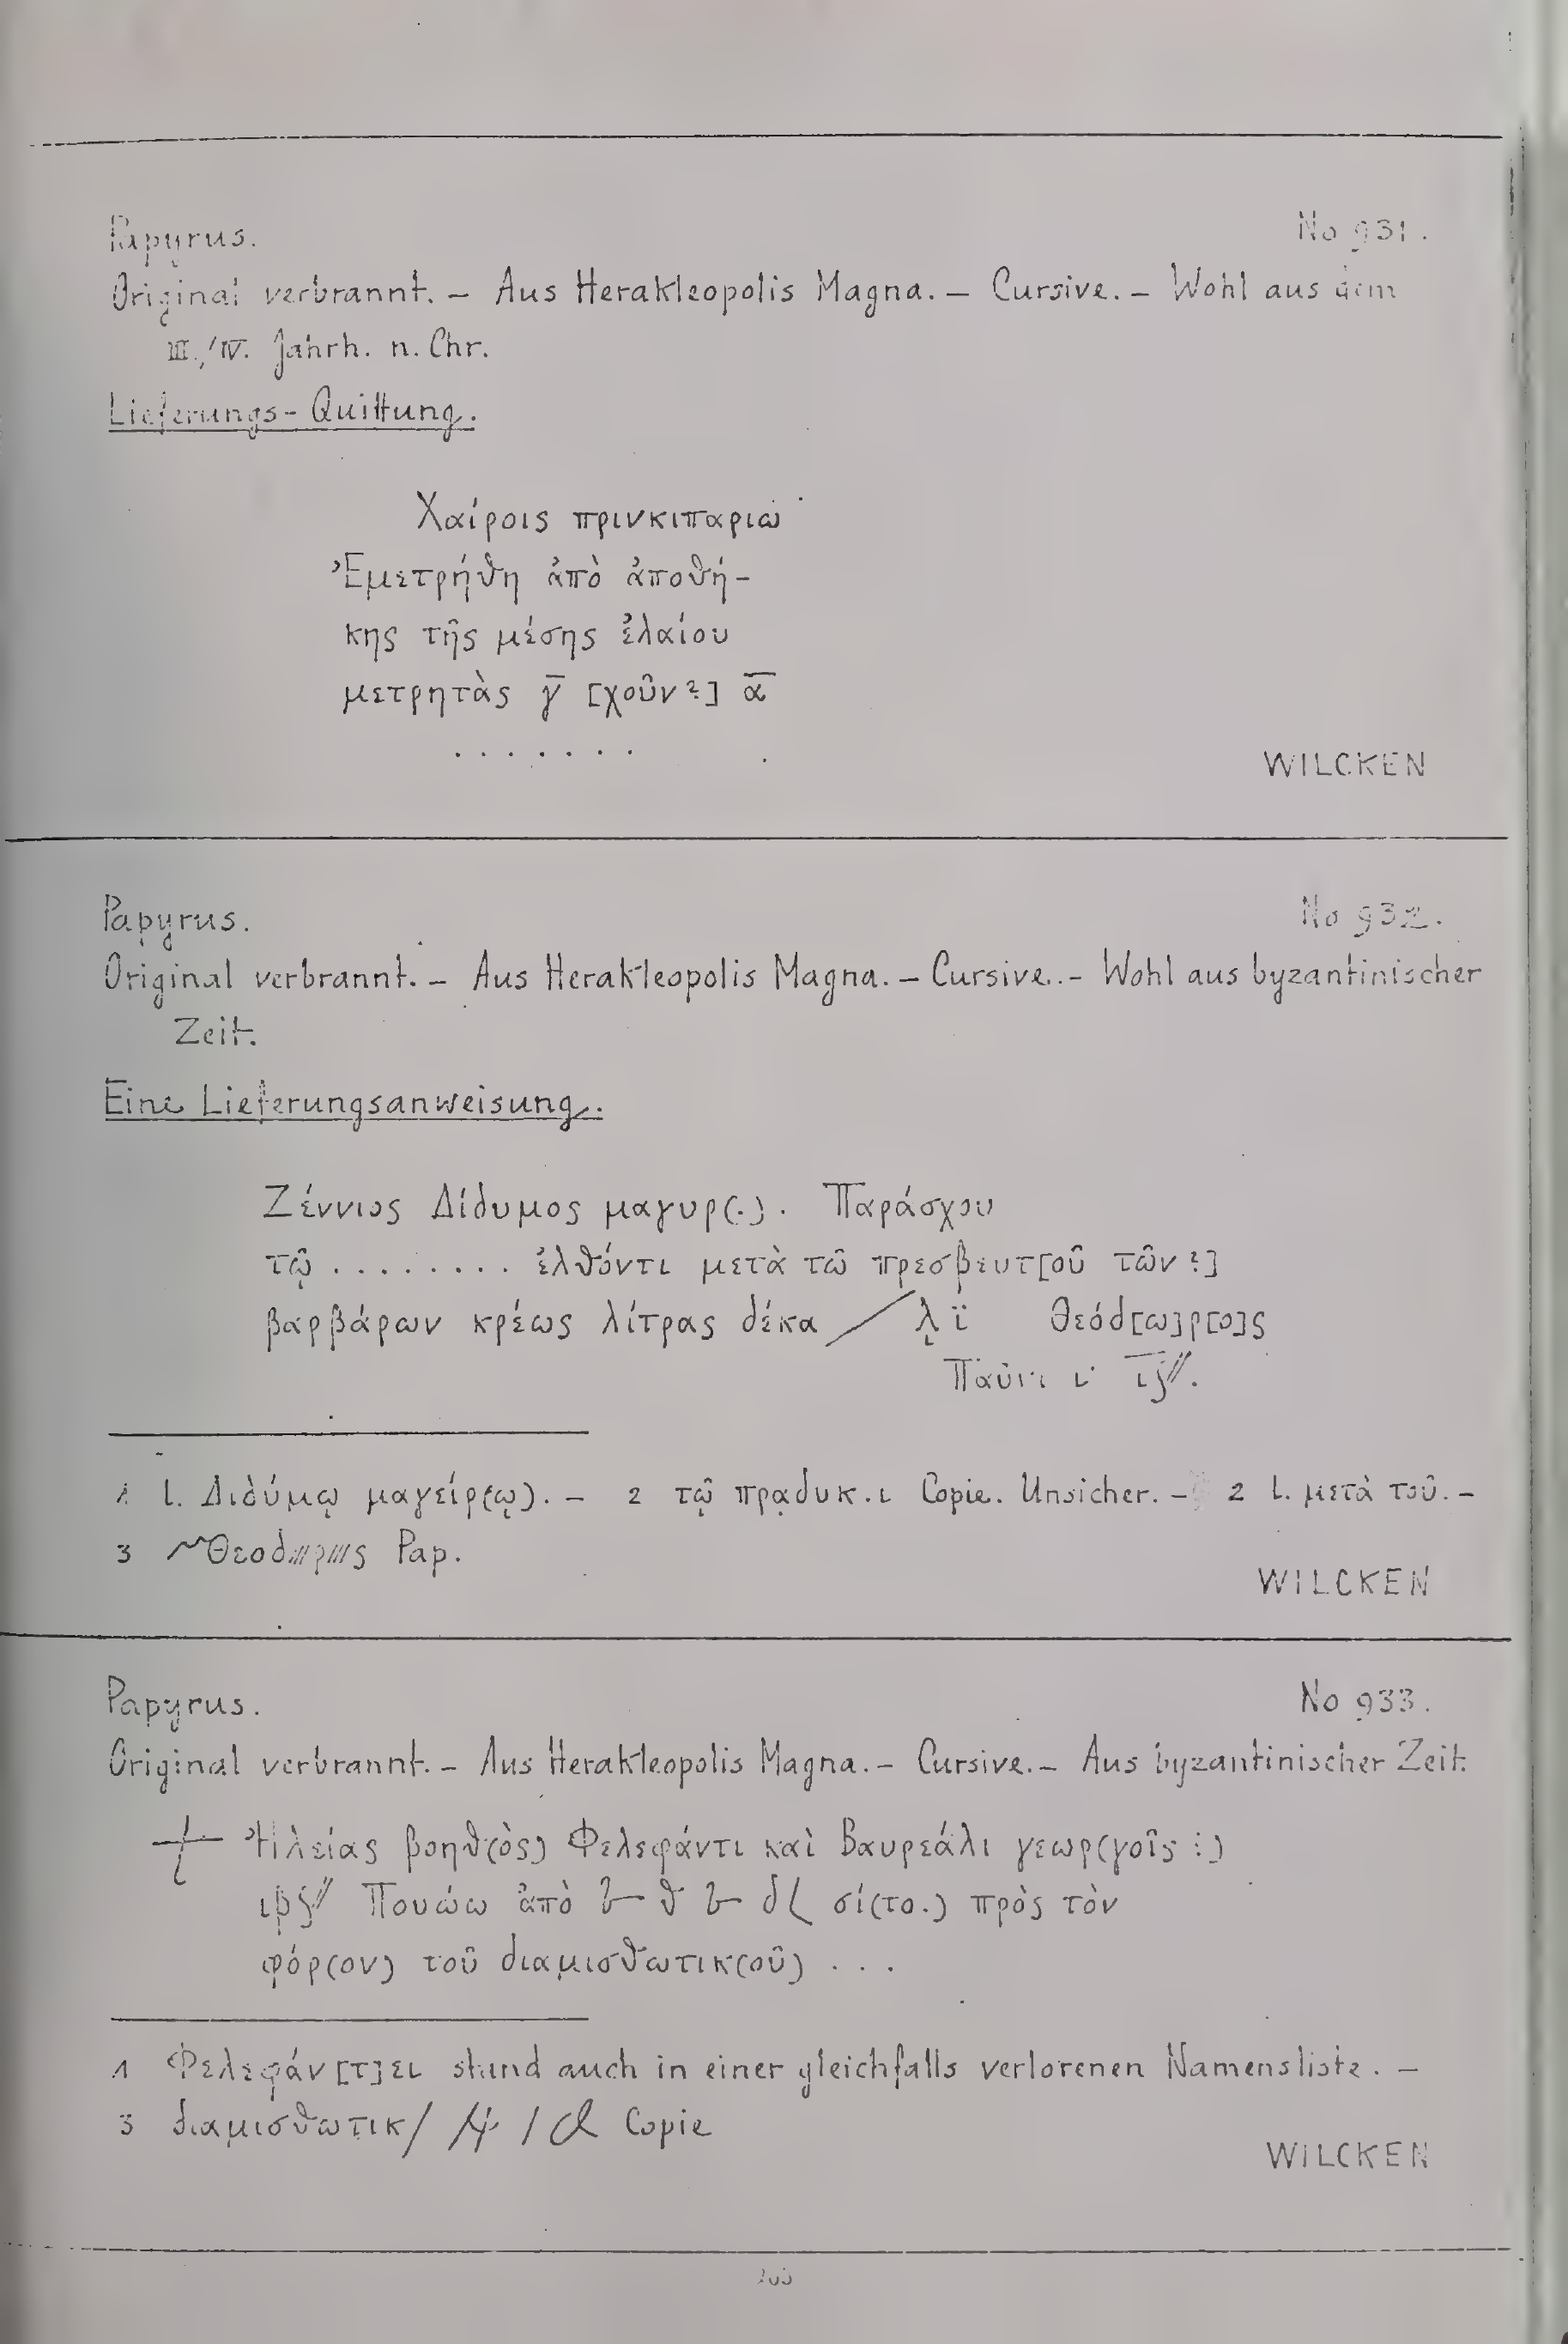 Papyrus. No 931.
Original verbrannt. – Aus Herakleopolis Magna. – Cursive. – Wohl aus dem
III./IV. Jahrh. n. Chr.
Lieferungs-Quittung.
Χαίροις πρινκιπαριω
Ἐμετρήθη ἀπὸ ἀποθή-
κης τῆς μέσης ἐλαίου
μετρητὰς γ̅ [χοῦν?] α̅
. . . . . . .
WILCKEN
Papyrus. No 932.
Original verbrannt. – Aus Herakleopolis Magna. – Cursive. – Wohl aus byzantinischer
Zeit.
Eine Lieferungsanweisung.
Ζέννιος Δίδυμος μαγυρ(.). Παράσχου
τῷ . . . . . . . . ἐλθόντι μετὰ τῶ πρεσβευτ[οῦ τῶν?]
βαρβάρων κρέως λίτρας δέκα ╱ λ̣ ϊ Θεόδ[ω]ρ[ο]ς
Παῦνι ιϛ//.
1 l. Διδύμῳ μαγείρ(ῳ). – 2 τῷ πρα̣δυκ.ι Copie. Unsicher. – 2 l. μετὰ τοῦ. –
3 Θεοδ///ρ///ς Pap.
WILCKEN
Papyrus. No 933.
Original verbrannt. – Aus Herakleopolis Magna. – Cursive. – Aus byzantinischer Zeit.
Ἠλείας βοηθ(ὸς) Φελεφάντι καὶ Βαυρεάλι γεωρ(γοῖς :)
ιβϛ// Πουώω ἀπὸ θ δ σί(το.) πρὸς τὸν
φόρ(ον) τοῦ διαμισθωτικ(οῦ) . . .
1 Φελεφάν[τ]ει stand auch in einer gleichfalls verlorenen Namensliste. –
3 διαμισθωτικ/ Copie
WILCKEN